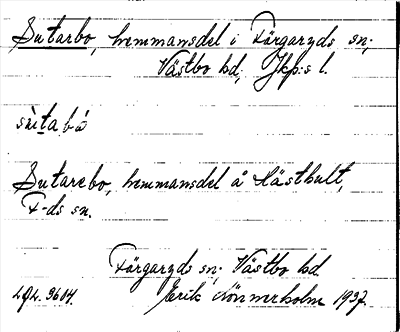 Sutarbo, hemmansdel i Färgaryds sn;
Västbo hd; Jkp:s l.
sùtabå
Sutarebo, hemmansdel å Hästhult,
F-ds sn.
Färgaryds sn; Västbo hd
Erik Lönnerholm 1937.